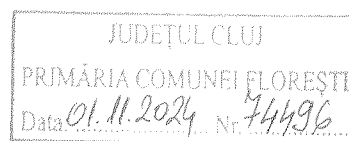 JUDEȚUL CLUJ
PRIMĂRIA COMUNEI FLOREȘTI
Data 01.11.2024 Nr. 74496